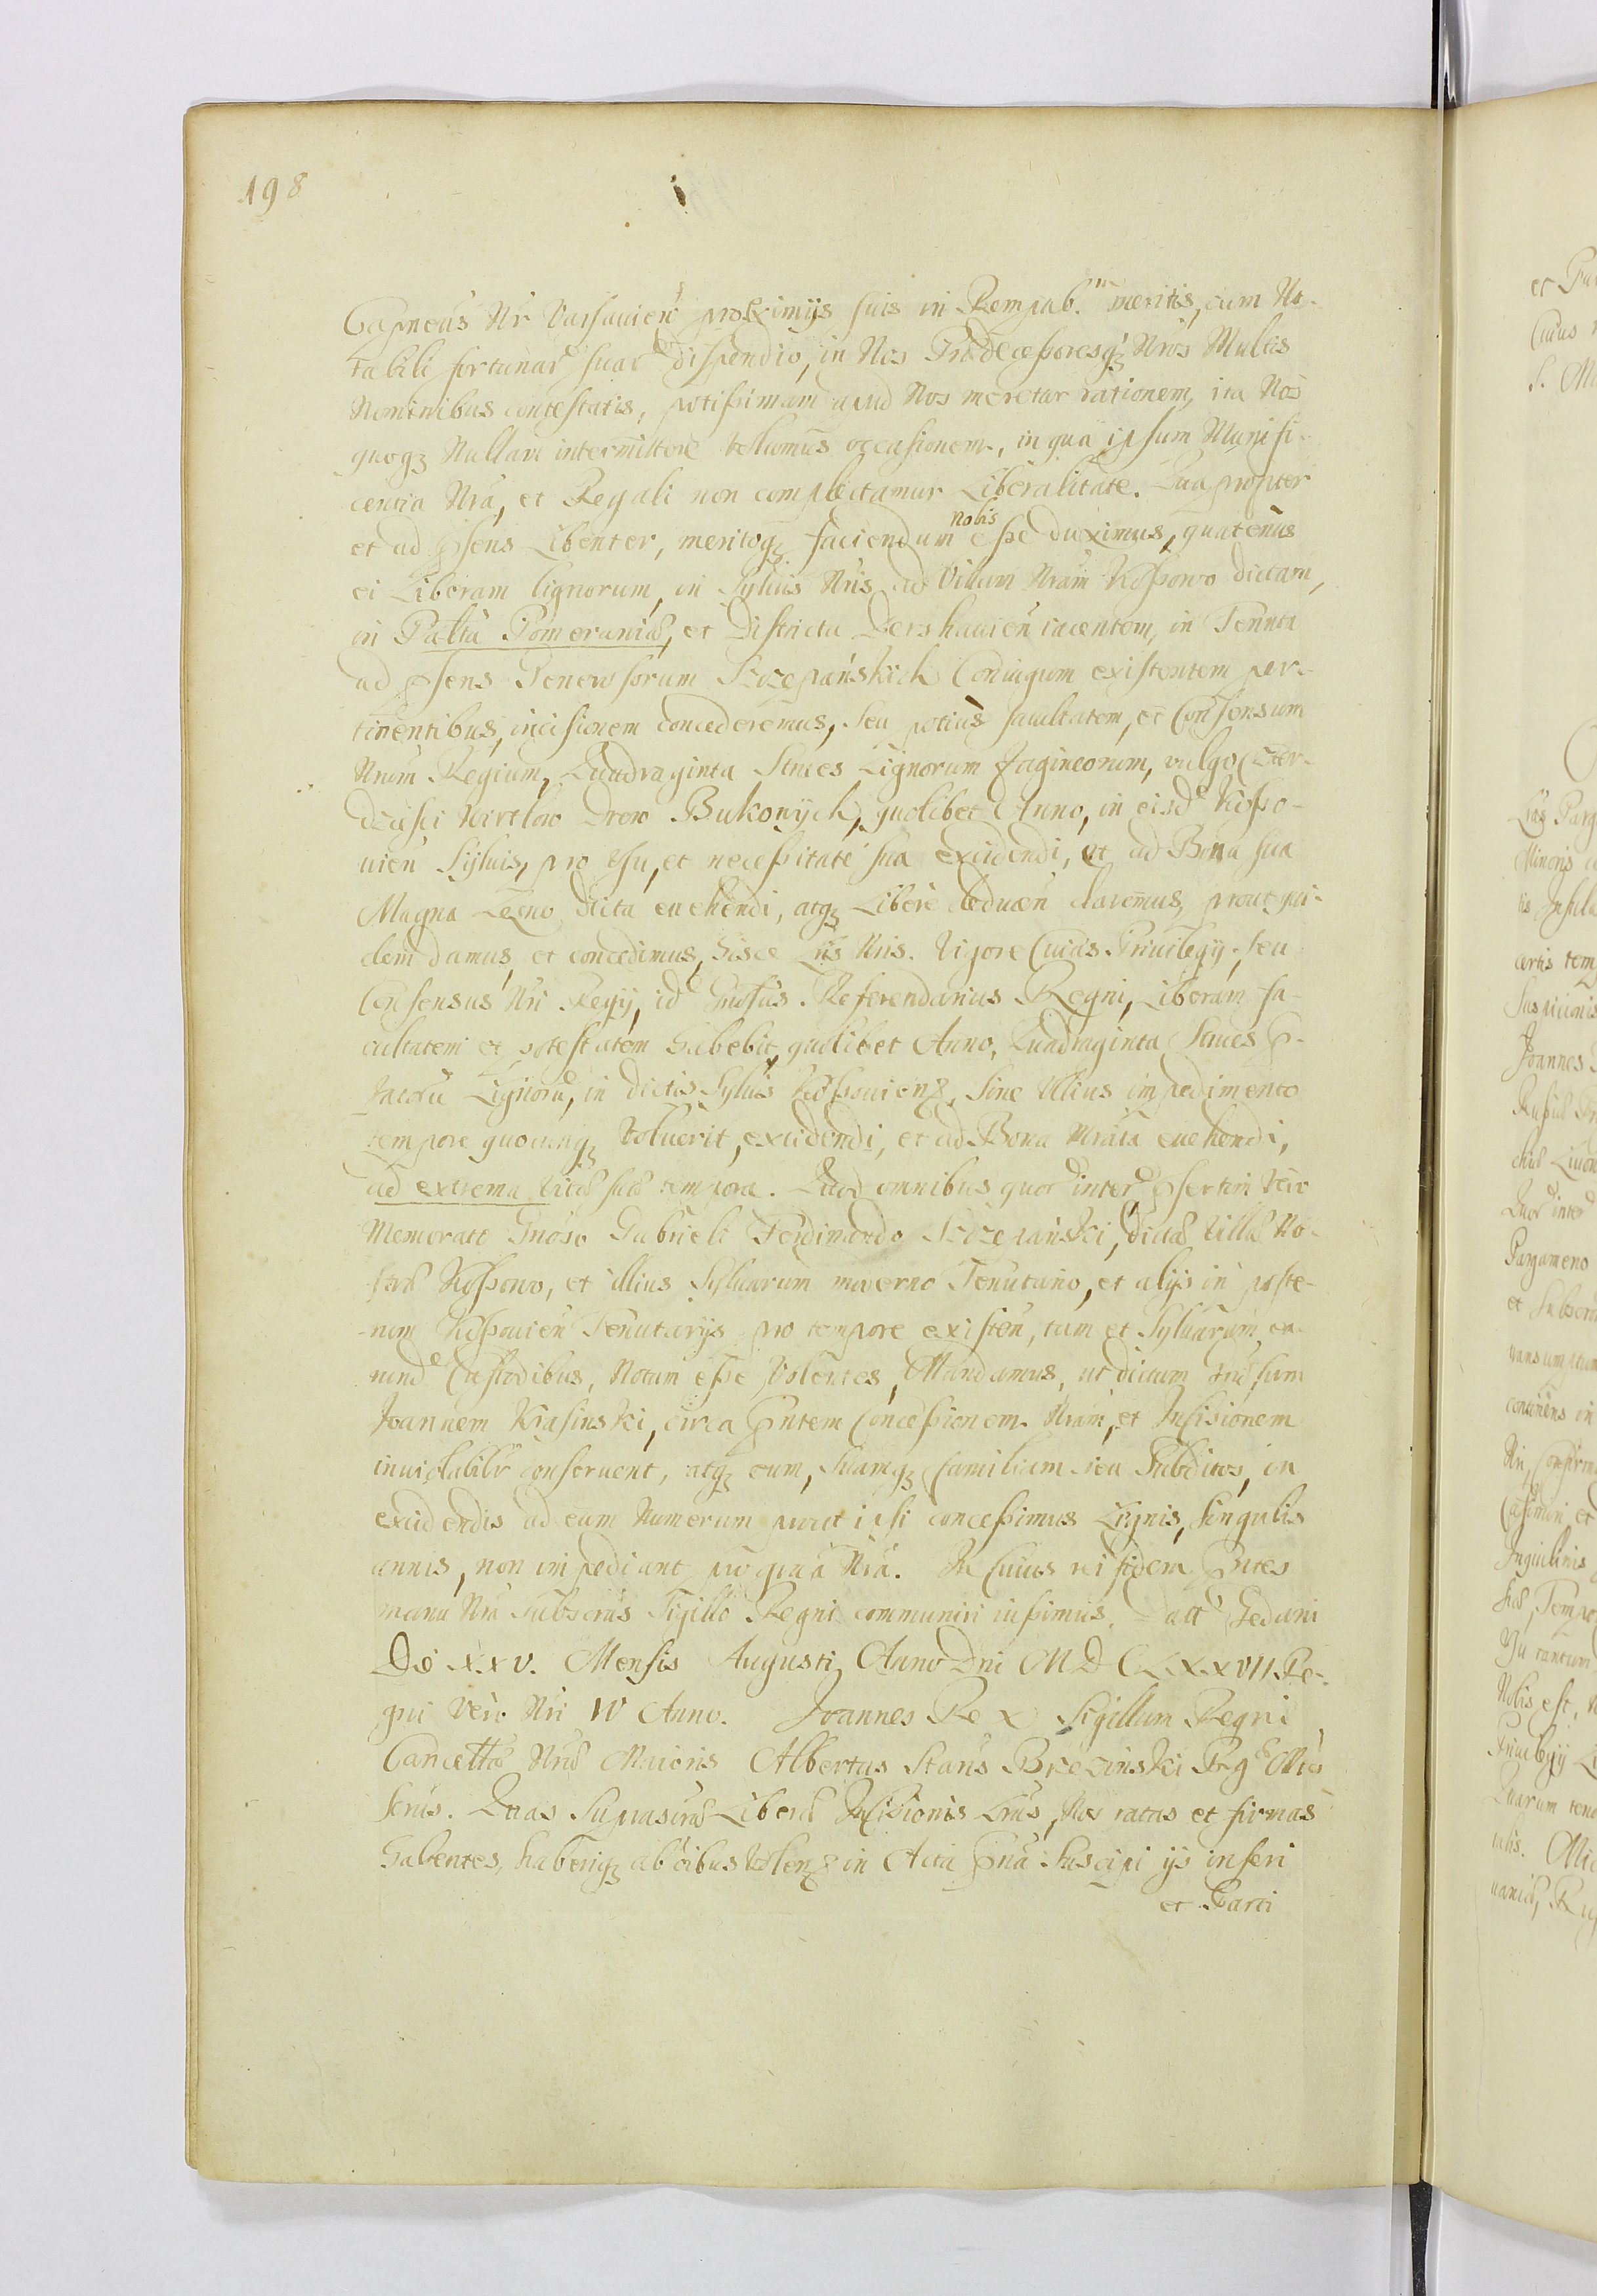 198
Capneus Nr Varsauien proximijs suis in Rempub.m meritis, cum No-
tabili fortunar suar dispendio, in Nos Prædecessoresqz Nros Multis
Nominibus contestatis, potissimam apud Nos meretur rationem, ita Nos
quoqz Nullam intermittere volumus occasionem, in qua ipsum Munifi-
centia Nra, et Regali non complectamur Liberalitate. Qua propter
et ad psens Libenter, meritoqz faciendum nobis esse duximus, quatenus
ei Liberam lignorum, in Syluis Nris ad Villam Nram Kossowo dictam,
in Paltu Pomeraniæ, et Districtu Dershauien iacentem, in Tenuta
ad psens Generosorum Szczepańskich Coniugum existentem per-
tinentibus, incisionem concederemus, seu potius facultatem, et Consensum
Nrum Regium, Quadraginta Strues Lignorum Fagineorum, vulgo czter-
dzieści Wirtlow Drew Bukowych, quolibet Anno, in eisd Kosso-
uien Syluis, pro usu, et necessitate sua excidendi, et ad Bona sua
Magna Lezno dicta euehendi, atqz Libere deducen daremus, prout qui-
dem damus, et concedimus, hisce Lris Nris. Vigore Cuius Priuilegij, seu
Consensus Nri Regij, id Gnosus Referendarius Regni, Liberam fa-
cultatem et potestatem habebit, quolibet Anno, Quadraginta Strues p-
factoru Lignoru, in dictis Syluis Kossouienz, Sine Ullius impedimento
tempore quocunqz Voluerit, excidendi, et ad Bona Mrata euehendi,
ad extrema vitæ suæ tempora. Quod omnibus quor interē psertim Vero
Memorato Gnoso Gabrieli Ferdinando Szczepański, dictæ villæ No-
stræ Kossowo, et illius Syluarum moderno Tenutario, et alijs in poste-
rum Kossouien Tenutarijs pro tempore existen, tum et Syluarum ea-
rund Custodibus, Notum esse Volentes, Mandamus, ut dictum Gnosum
Joannem Krasinski, circa pntem Concessionem Nram, et Incisionem
inuiolabilr conseruent, atqz eum, suamqz familiam seu Subditos, in
excidendis ad eum Numerum prout ipsi concessimus Lignis, singulis
annis, non impediant pro grua Nra. In Cuius rei fidem pntes
manu Nra Subscrus Sigillo Regni communiri iussimus. Datt Gedani
Die XXV. Mensis Augusti Anno Dni MDCLXXVII Re-
gni Vero Nri IV Anno. Joannes Rex Sigillum Regni
Cancellæ Nræ Maioris Albertus Stanis Brzezinski
Quas Suprascras Liberæ Incisionis Lras, Nos ratas et firmas
Habentes, haberiqz ab oibus Volenz in Acta pna Suscipi ijs inseri
et Parti